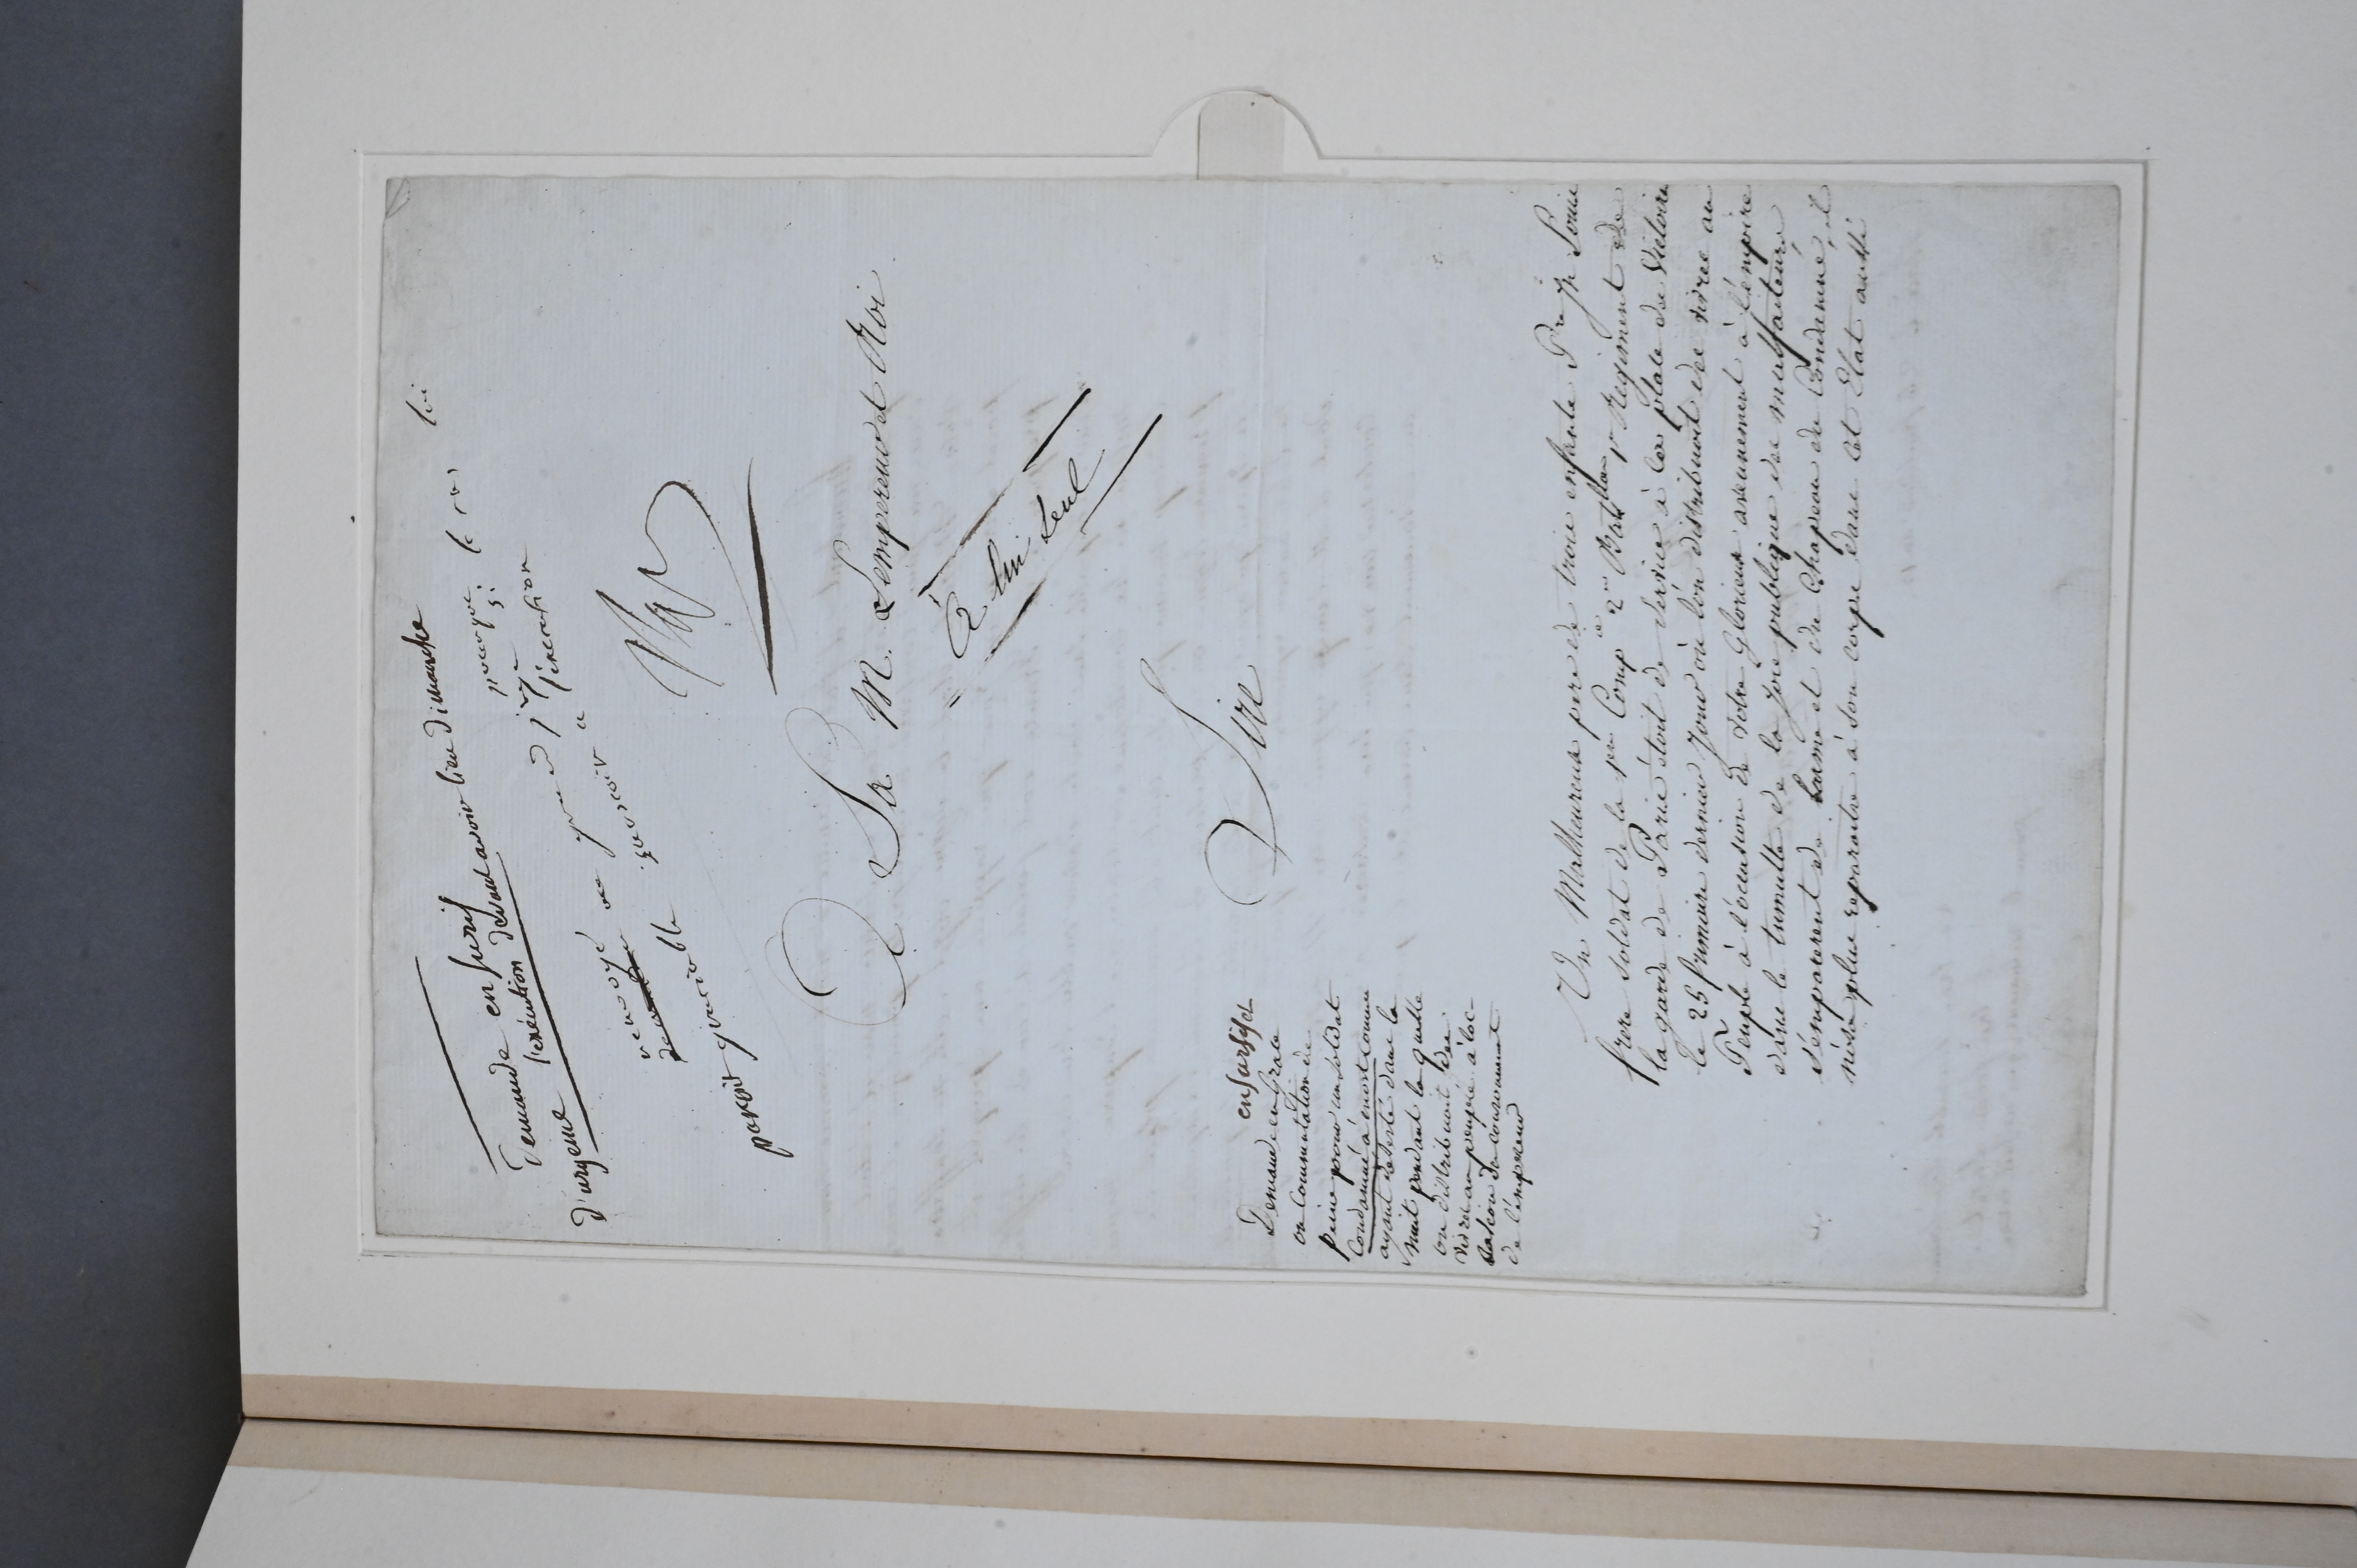 Demande en sursis
d'urgence l'exécution devant avoir lieu dimanche
renvoyé au grand juge pour que si le roi lui
paroit graciable surseoir a l'execution
Nap
A Sa M. Lempereur et Roi
à lui seul
Sire
en sursis et
Demande en Grace
ou Commutation de
peine pour un soldat
Condamné à mort comme
ayant déserté dans la
nuit pendant laquelle
on distribuoit des
vivres au peuple à loc-
casion du couronnement
de l'empereur
Un Malheureux pere de trois enfants Pre Jh Louis
frere soldat de la 1re Comp ie 2me Batillon 1r Regiment de
la garde de Paris étoit de service à la place des Victoires
le 25 frimaire dernier Jour où l'on distribuoit des vivres au
Peuple à l'occasion de votre Glorieux avennement à l'empire
dans le tumulte de la joie publique des malfaiteurs
s'emparerent de larme et du Chapeau du Condamné, il
n'osa plus reparoitre à son corps dans cet Etat aussi